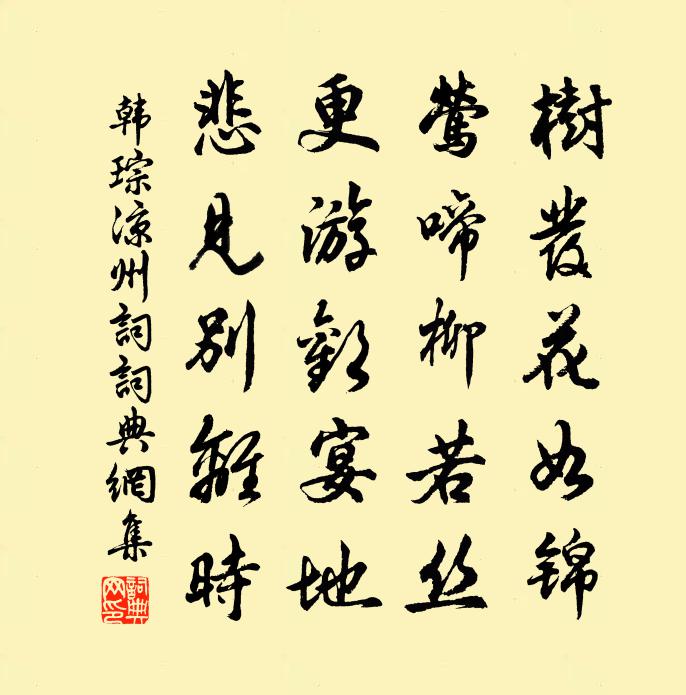 樹發花如錦
鶯啼柳若丝
更游歡宴地
悲見別離時
韩琮涼州詞詞典網集
詞典网印